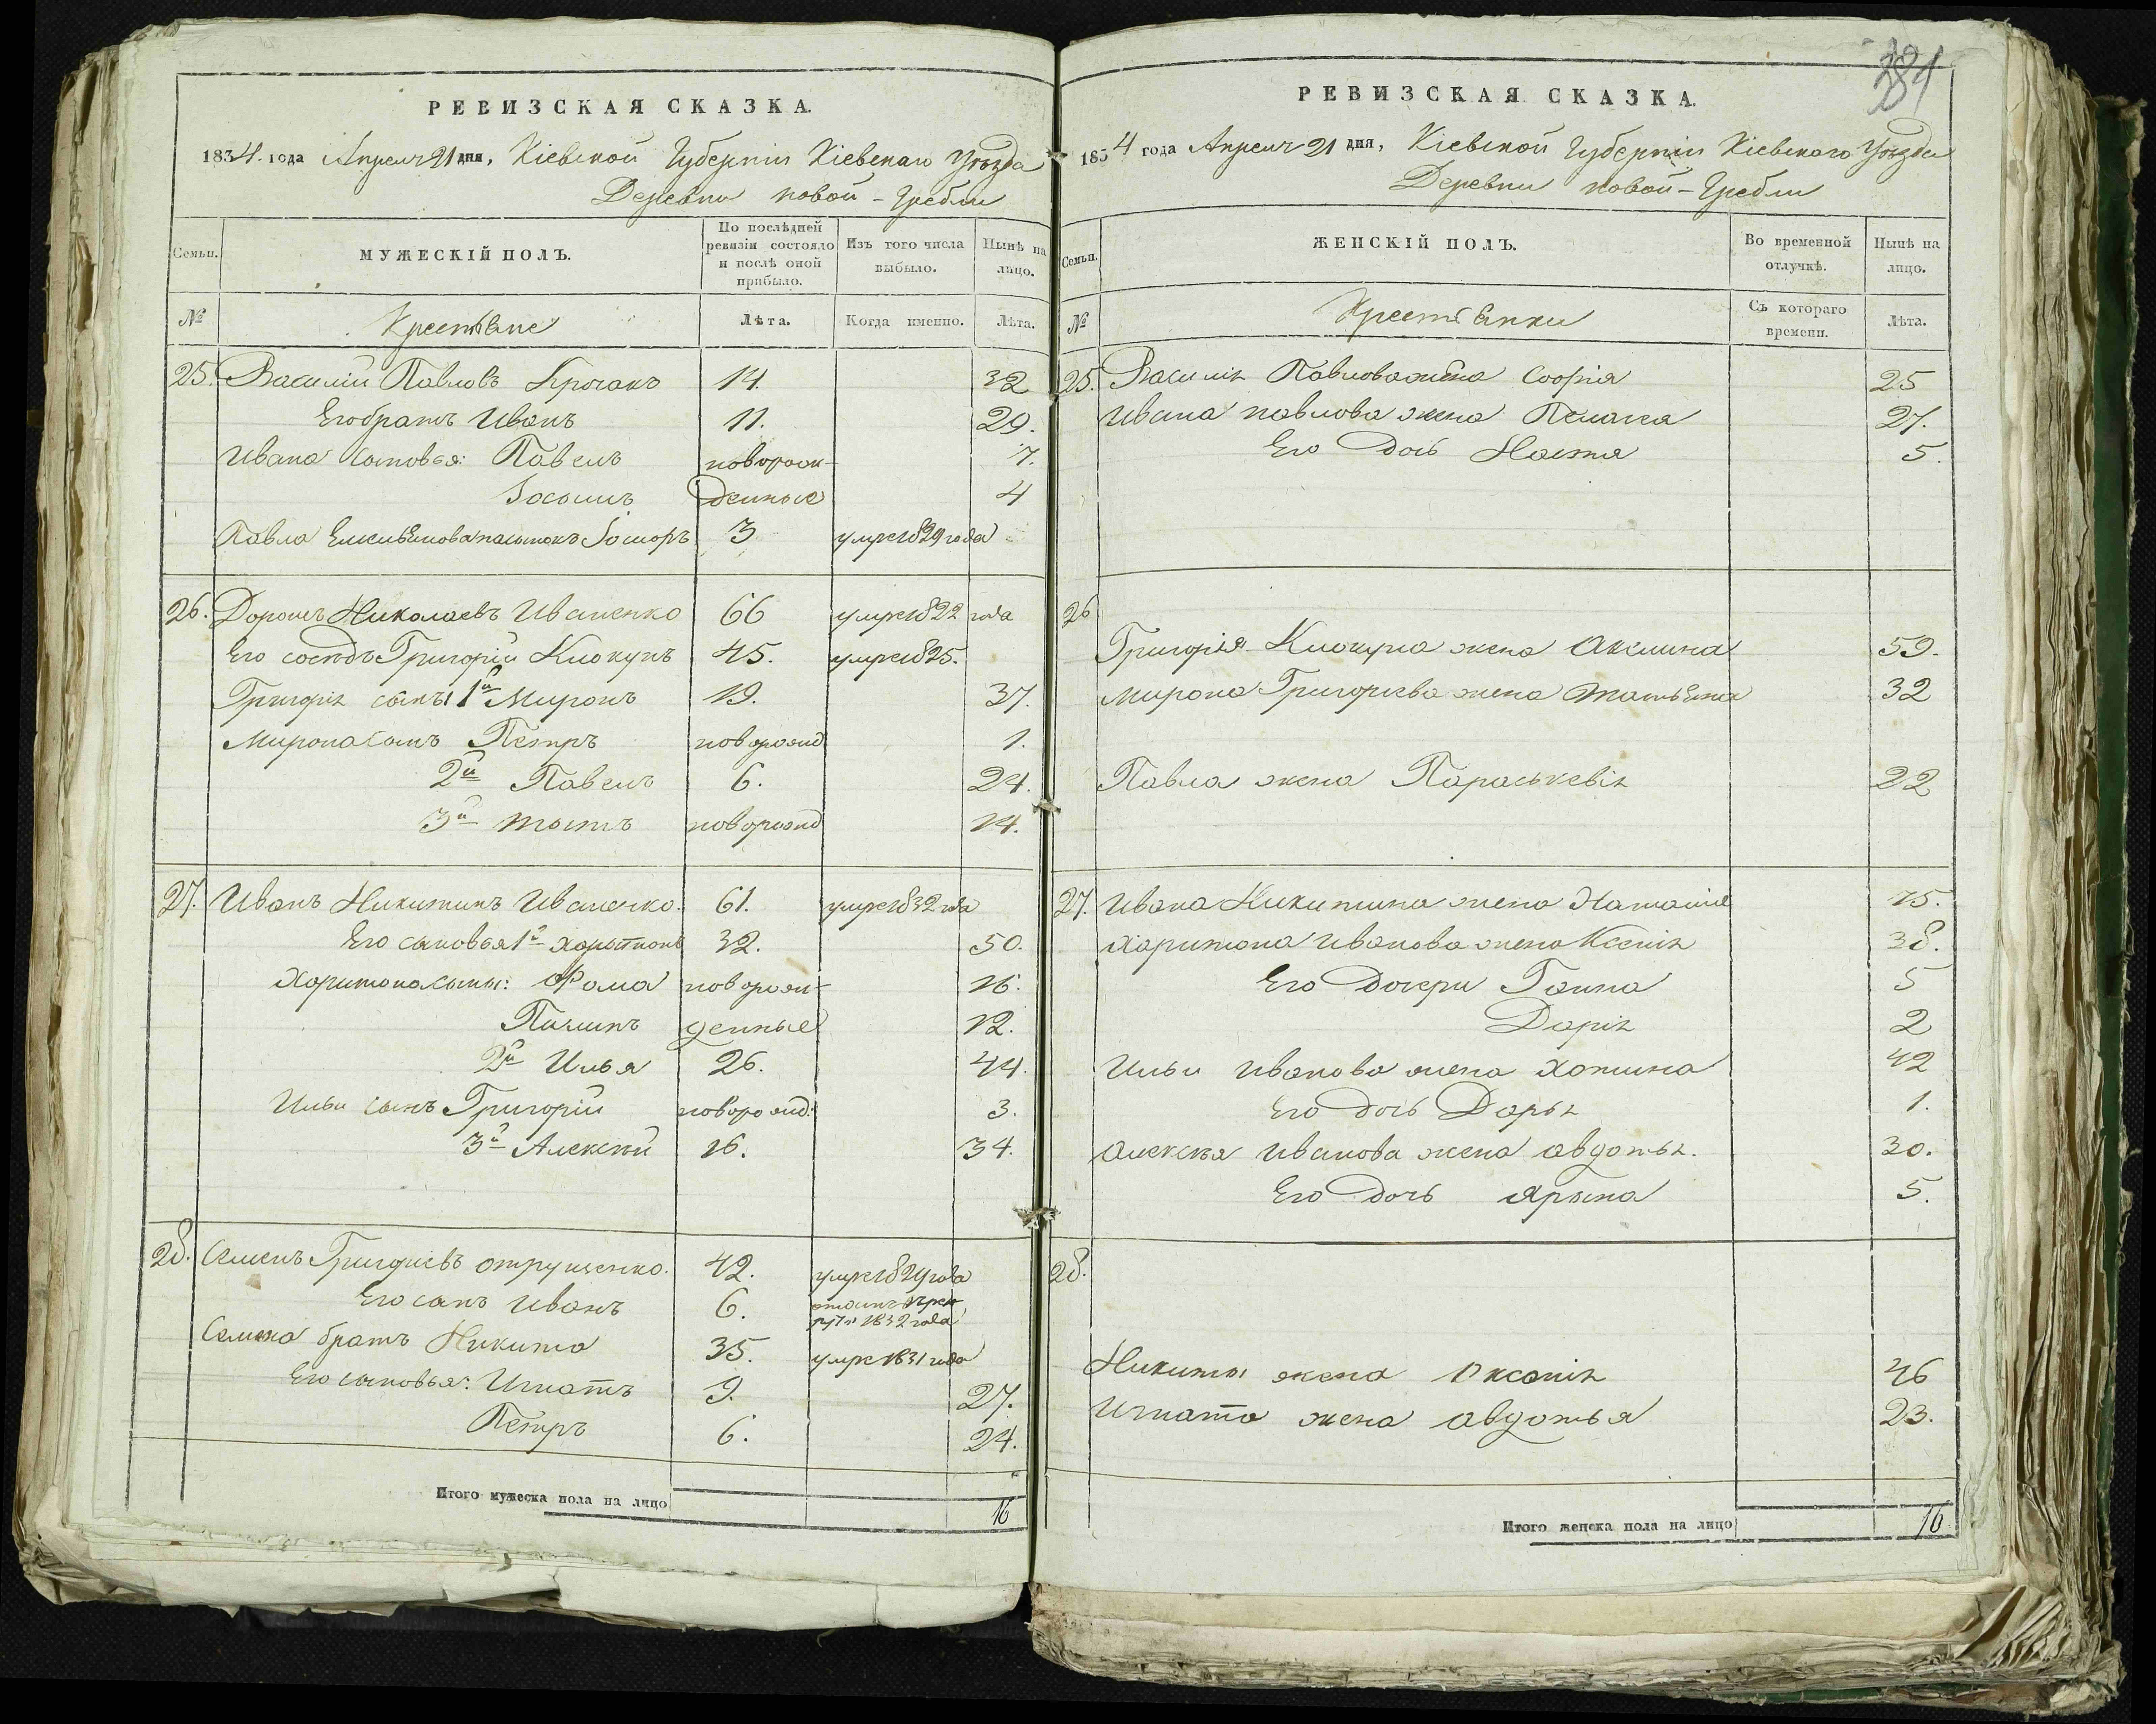 РЕВИЗСКАЯ СКАЗКА.
1834. года Апреля 21 дня, Кіевской Губерніи Кіевскаго Уѣзда
Деревни Новой-Гребли
Семьи. МУЖЕСКІЙ ПОЛЪ. По послѣдней ревизіи состояло и послѣ оной прибыло. Изъ того числа выбыло. Нынѣ на лицо.
№ Крестьяне Лѣта. Когда именно. Лѣта.
25. Василій Павловъ 14. 32
Его братъ Иванъ 11. 29.
Ивана сыновья: Павелъ новорож- 7.
Іосыпъ денные 4
Павла Емельянова пасынокъ 3 умре 1829 года
26. Дорошъ Николаевъ Иваненко 66 умре 1822 года
Его сосѣдъ Григорій Клокунъ 45. умре 1825.
Григорія сыны 1й Миронъ 19. 37.
Мирона сынъ Петръ новорожд 1.
2й Павелъ 6. 24.
3й новорожд 14.
27. Иванъ Никитинъ Иваненко. 61. умре 1832 года
Его сыновья 1й Харытонъ 32. 50.
Харитона сыны: Фома новорож- 16.
денные 12.
2й Илья 26. 44.
Ильи сынъ Григорій новорожд: 3.
3й Алексѣй 16. 34.
28. Семенъ Григорьевъ 42. умре 1829 года
Его сынъ Иванъ 6. 1832 года
Семена братъ Никита 35. умре 1831 года
Его сыновья: Игнатъ 9. 27.
Петръ 6. 24.
Итого мужеска пола на лицо 16
381
РЕВИЗСКАЯ СКАЗКА.
1854 года Апреля 21 дня, Кіевской Губерніи Кіевскаго Уѣзда
Деревни Новой-Гребли
Семьи. ЖЕНСКІЙ ПОЛЪ. Во временной отлучкѣ. Нынѣ на лицо.
№ Крестьянки Съ котораго времени. Лѣта.
25. Василія Павлова жена Софія 25
Ивана Павлова жена Пелагея 27.
Его дочь Настя 5.
26
Григорія Клокуна жена Акилина 59.
Мирона Григорьева жена Татьяна 32
Павла жена Параськевія 22
27. Ивана Никитина жена Наталія 75.
Харитона Иванова жена Ксенія 38.
Его дочери Ганна 5
Дарія 2
Ильи Иванова жена 42
Его дочь Дарья 1.
Алексѣя Иванова жена Авдотья. 30.
Его дочь Ярына 5.
28.
Никиты жена Оксанія 46
Игната жена Авдотья 23.
Итого женска пола на лицо 16